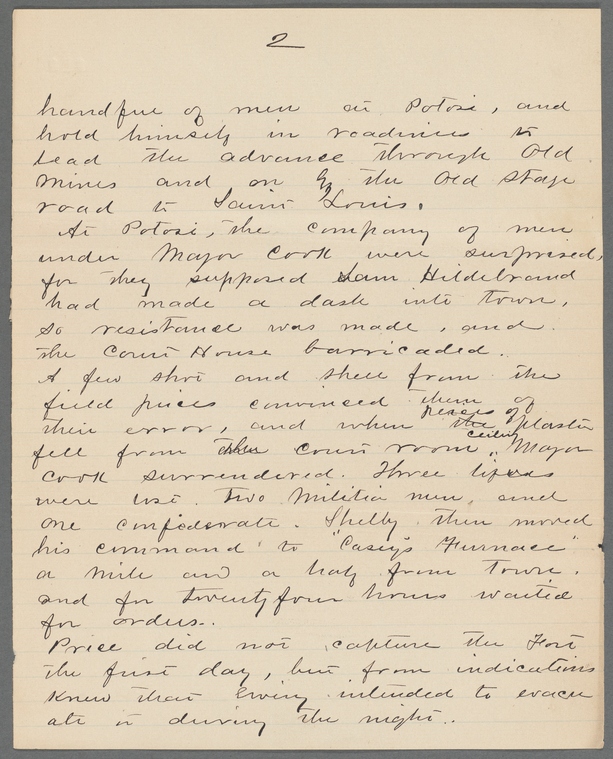 2
handful of men at Potosi, and
hold himself in readiness to
lead the advance through Old
Mines and on the Old Stage
road to Saint Louis.
At Potosi, the company of men
under Major Cook were surprised,
for they supposed Sam Hildebrand
had made a dash into town,
so resistance was made, and
the Court House barricaded.
A few shot and shell from the
field pieces convinced them of
their error, and when pieces of plaster
fell from the court room ceiling, Major
Cook surrendered. Three lives
were lost. Two Militia men, and
one confederate. Shelby then moved
his command to "Casey's Furnace"
a mile and a half from town.
and for twenty four hours waited
for orders.
Price did not capture the Fort
the first day, but from indications
knew that Ewing intended to evacu
ate it during the night..